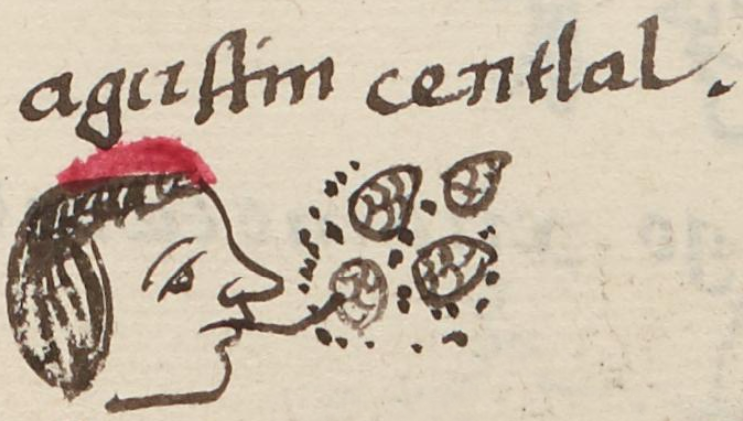 agustin centlal.